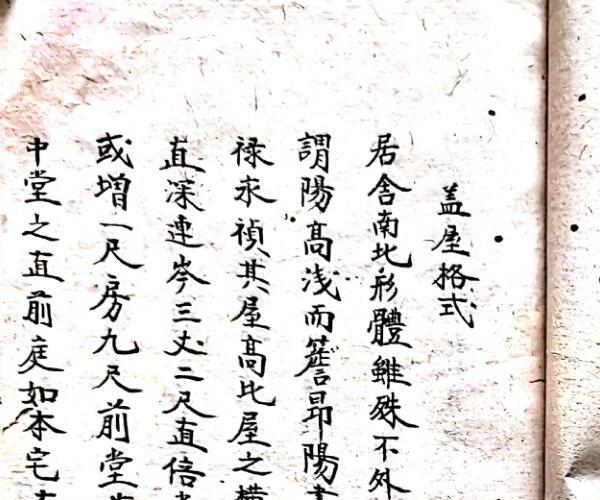 盖屋格式
居舍南北形體雖殊不外
謂陽高淺而簷昂陽
禄永禎其屋高比屋之横
直深連岑三丈二尺直倍
或增一尺房九尺前堂
中堂之直前庭如本宅